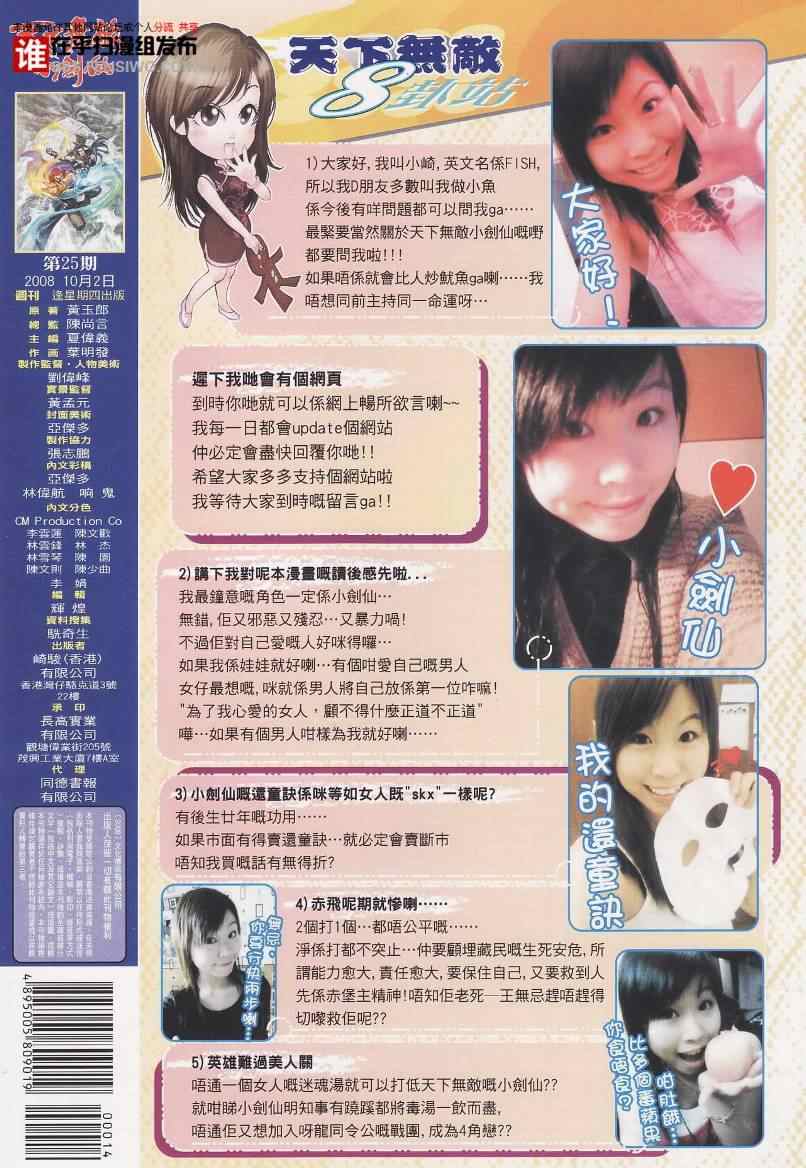 本漫画允许其他网站论坛或个人分流 共享
谁在乎扫漫组发布
天下無敵
8卦站
第25期
2008 10月2日
週刊 逢星期四出版
原著 黃玉郎
總監 陳尚言
主編 夏偉義
作画 葉明發
製作監督・人物美術
劉偉峰
實景監督
黃孟元
封面美術
亞傑多
製作協力
張志鵬
內文彩稿
亞傑多
林偉航 响 鬼
內文分色
CM Production Co
李雲蓮 陳文歡
林雲鋒 林 杰
林雪琴 陳 園
陳文則 陳少曲
李 娟
編輯
輝煌
資料搜集
駪奇生
出版者
崎駿(香港)
有限公司
香港灣仔駱克道3號
22樓
承印
長高實業
有限公司
觀塘偉業街205號
茂興工業大廈7樓A室
代理
同德書報
有限公司
4895005809019
00014
1)大家好,我叫小崎,英文名係FISH,
所以我D朋友多數叫我做小魚
係今後有咩問題都可以問我ga……
最緊要當然關於天下無敵小劍仙嘅嘢
都要問我啦!!!
如果唔係就會比人炒魷魚ga喇……我
唔想同前主持同一命運呀…
大家好!
遲下我哋會有個網頁
到時你哋就可以係網上暢所欲言喇~~
我每一日都會update個網站
仲必定會盡快回覆你哋!!
希望大家多多支持個網站啦
我等待大家到時嘅留言ga!!
小劍仙
2)講下我對呢本漫畫嘅讀後感先啦...
我最鐘意嘅角色一定係小劍仙…
無錯,佢又邪惡又殘忍…又暴力喎!
不過佢對自己愛嘅人好咪得囉…
如果我係娃娃就好喇…有個咁愛自己嘅男人
女仔最想嘅,咪就係男人將自己放係第一位咋嘛!
"為了我心愛的女人,顧不得什麼正道不正道"
嘩…如果有個男人咁樣為我就好喇……
我的還童訣
3)小劍仙嘅還童訣係咪等如女人既"skx"一樣呢?
有後生廿年嘅功用……
如果市面有得賣還童訣…就必定會賣斷市
唔知我買嘅話有無得折?
4)赤飛呢期就慘喇……
2個打1個…都唔公平嘅……
淨係打都不突止…仲要顧埋藏民嘅生死安危,所
謂能力愈大,責任愈大,要保住自己,又要救到人
先係赤堡主精神!唔知佢老死─王無忌趕唔趕得
切嚟救佢呢??
無忌,
你要行快兩步喇…
5)英雄難過美人關
唔通一個女人嘅迷魂湯就可以打低天下無敵嘅小劍仙??
就咁睇小劍仙明知事有蹺蹊都將毒湯一飲而盡,
唔通佢又想加入呀龍同令公嘅戰團,成為4角戀??
咁肚餓…
比多個番蘋果
你食唔食?